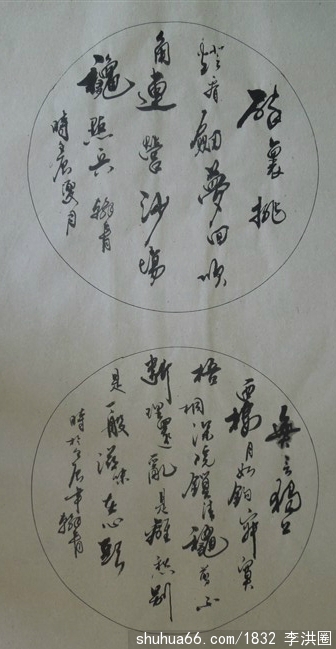 醉裏挑
燈看劍夢回吹
角連營沙場
穐點兵
時壬辰夏月
無言獨上
西樓月如鉤寂寞
梧桐深院鎖清穐剪不
斷理還亂是離愁別
是一般滋味在心頭
時於壬辰年
shuhua66.com/1832 李洪圈